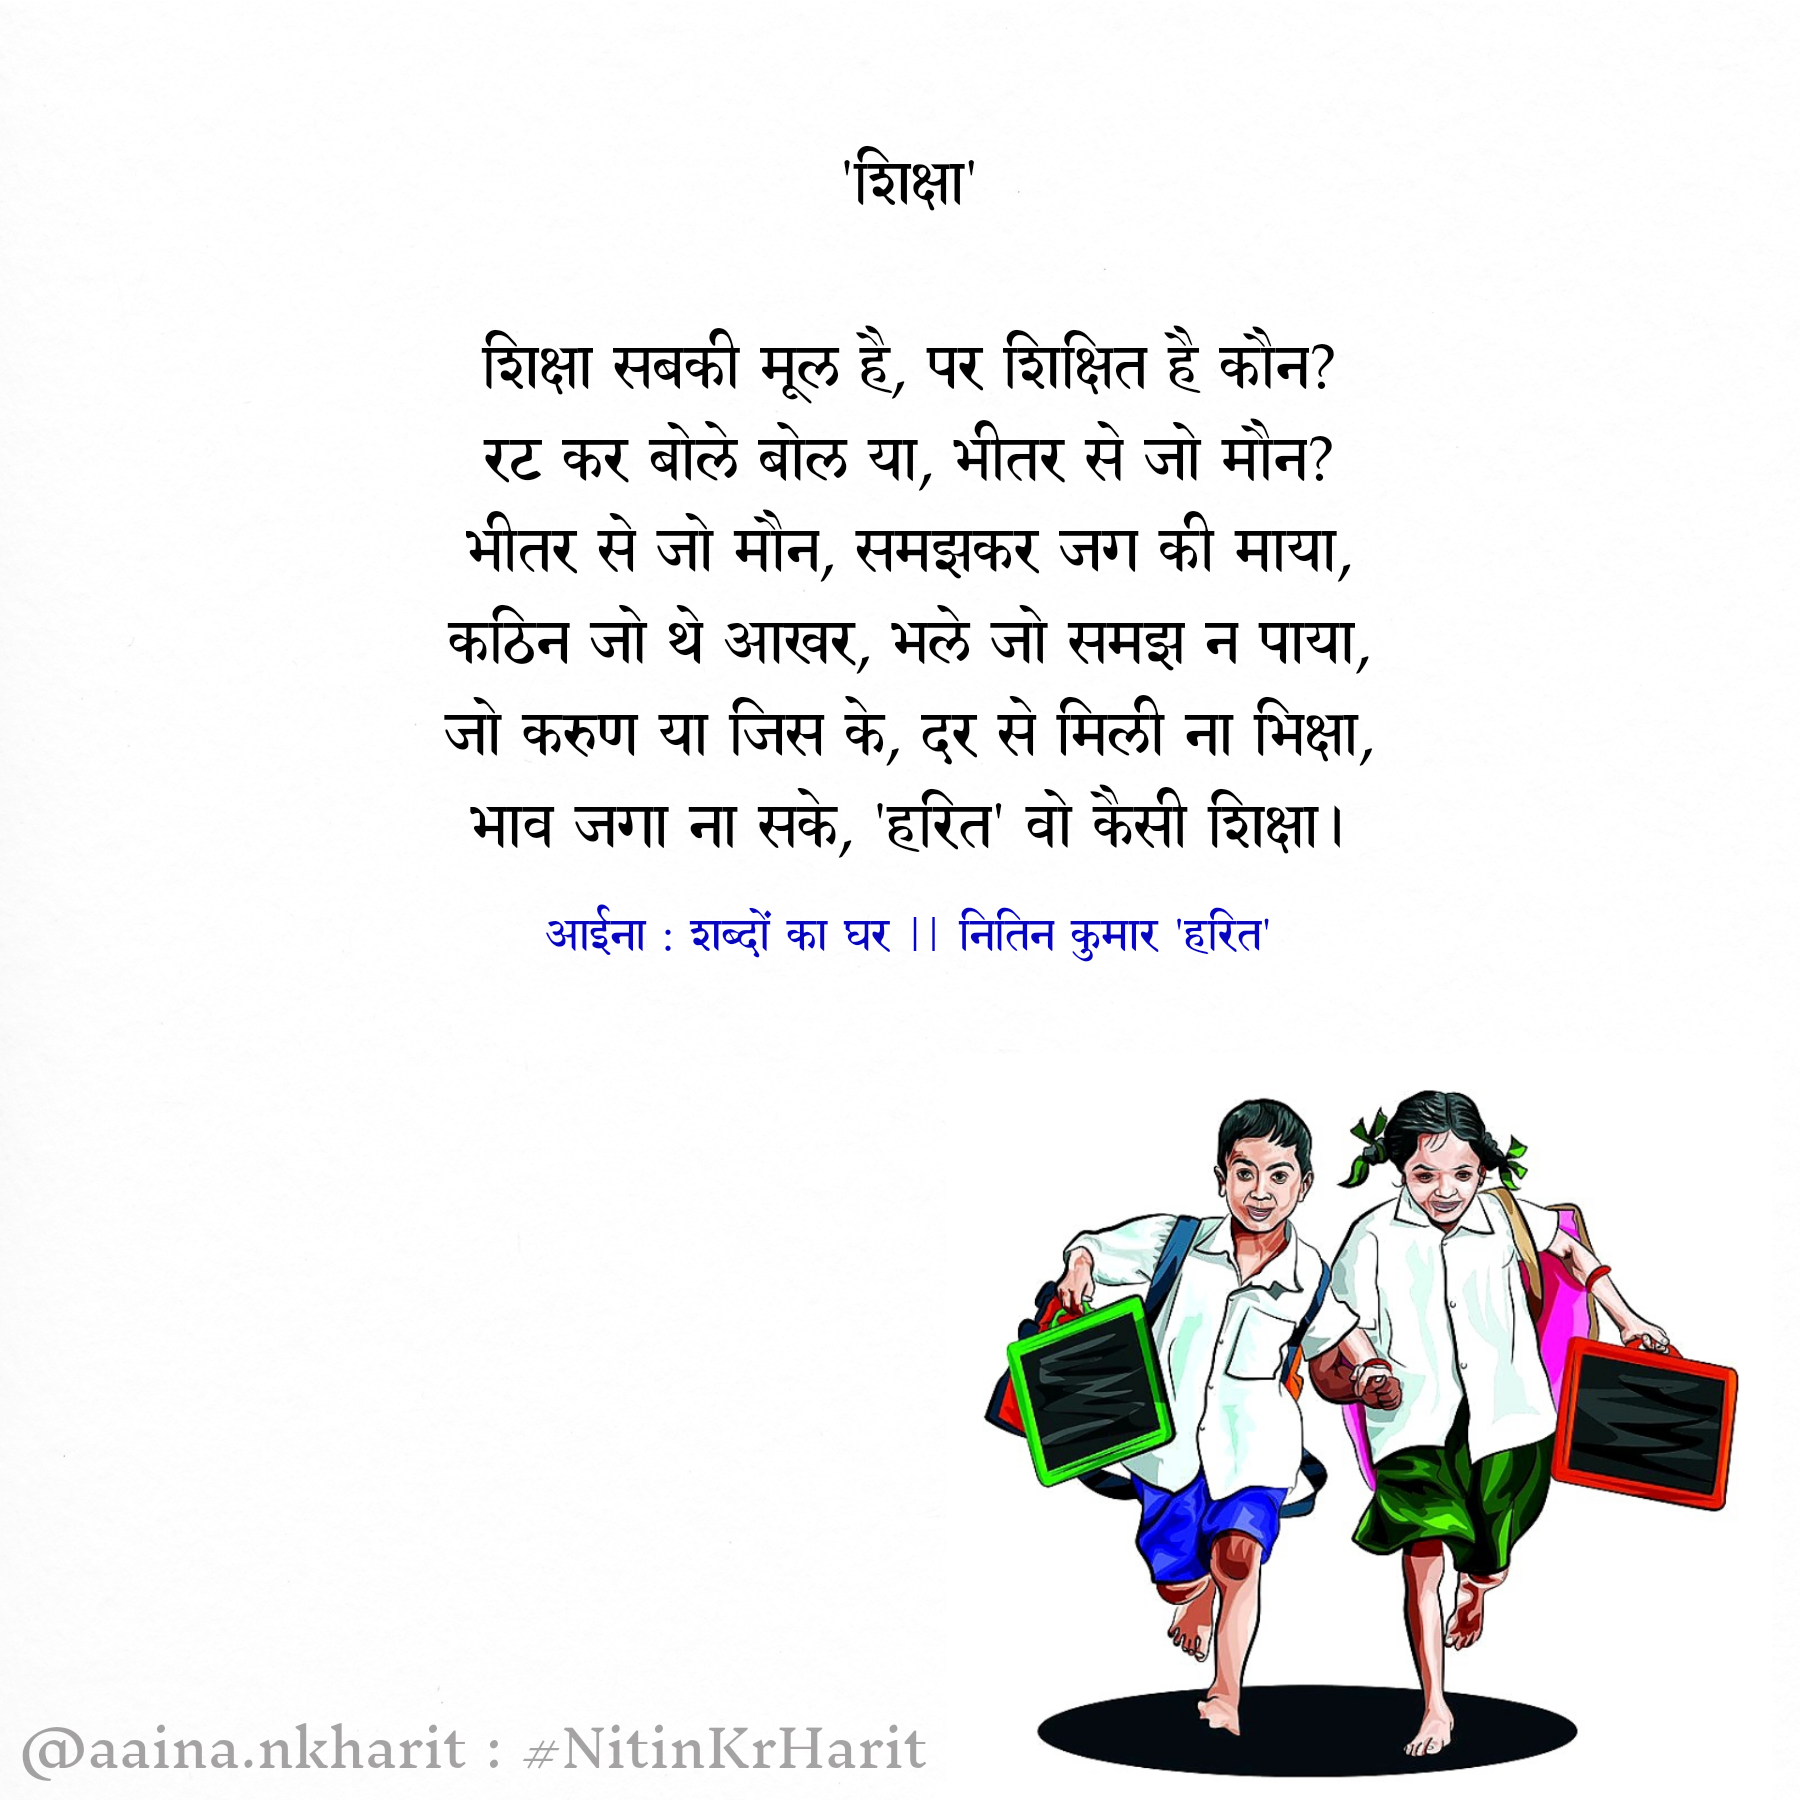 'शिक्षा'
शिक्षा सबकी मूल है, पर शिक्षित है कौन?
रट कर बोले बोल या, भीतर से जो मौन?
भीतर से जो मौन, समझकर जग की माया,
कठिन जो थे आखर, भले जो समझ न पाया,
जो करुण या जिस के, दर से मिली ना भिक्षा,
भाव जगा ना सके, 'हरित' वो कैसी शिक्षा।
आईना : शब्दों का घर || नितिन कुमार 'हरित'
@aaina.nkharit : #NitinKrHarit